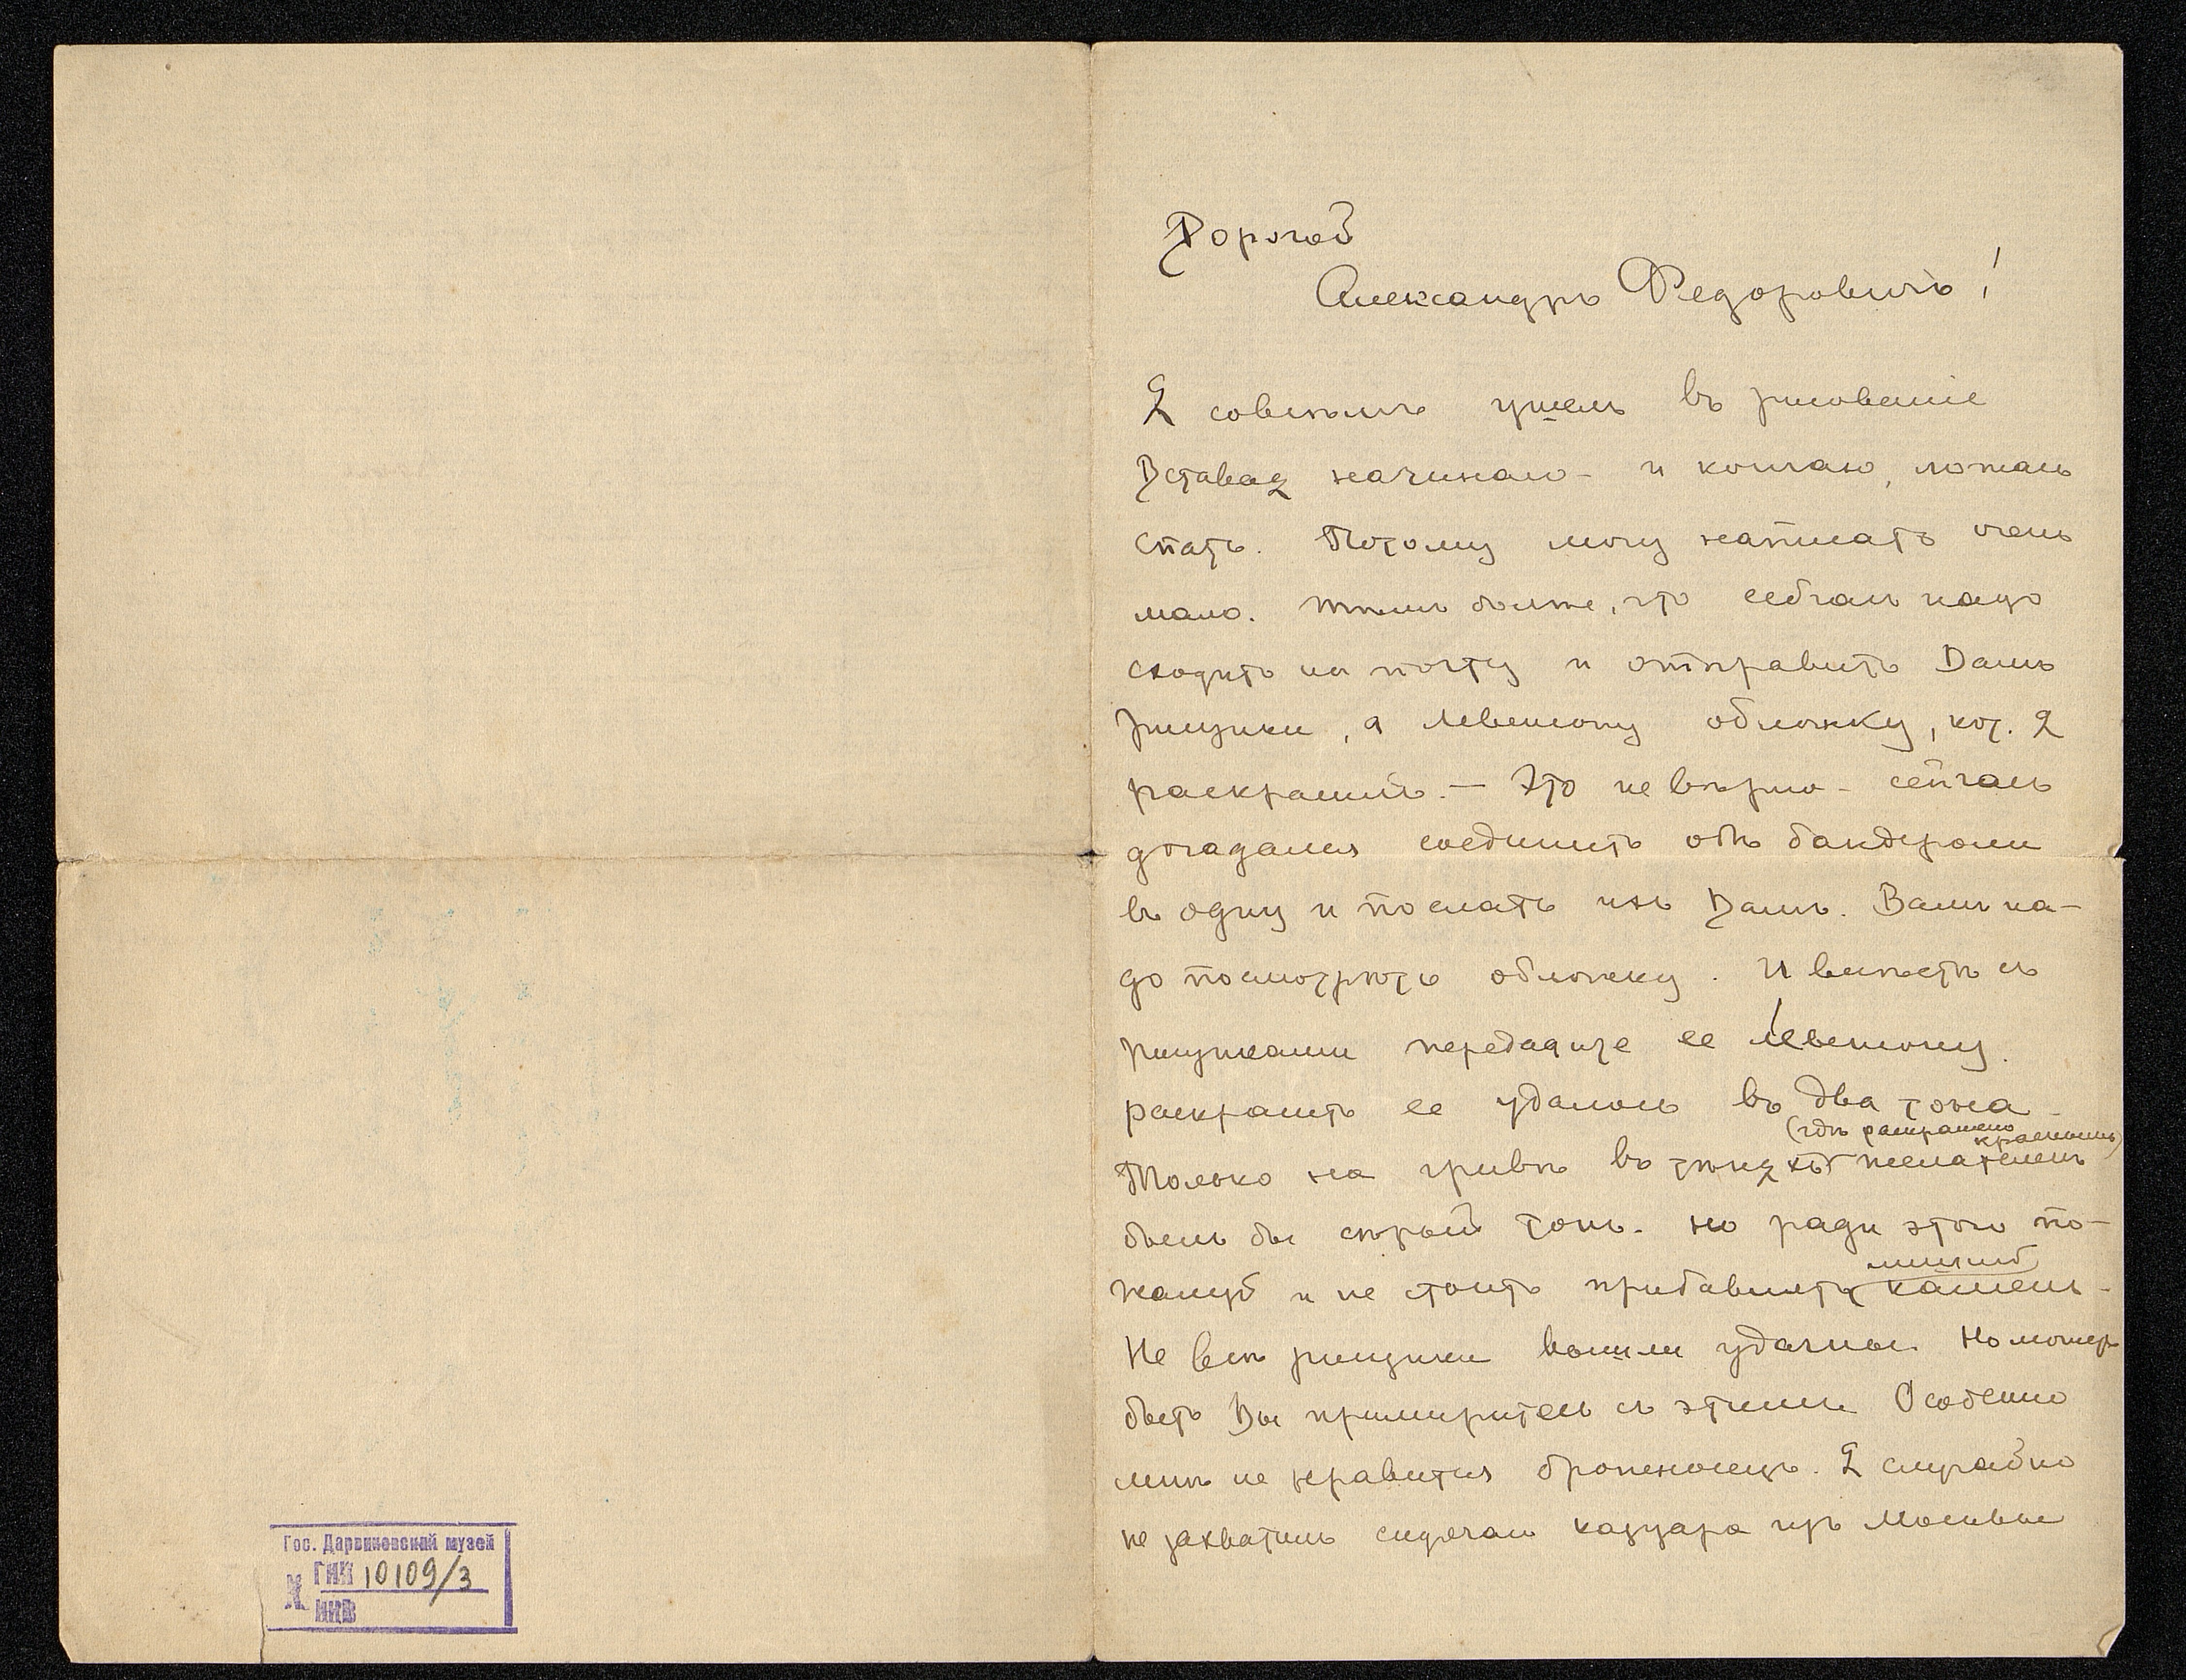 Дорогой
Александръ Федоровичъ!
Я совсѣмъ ушелъ въ рисованіе
Вставая начинаю – и кончаю, ложась
спать. Потому могу написать очень
мало. Тѣмъ болѣе, что сейчас надо
сходить на почту и отправить Вамъ
рисунки, а Левенсону обложку, кот. я
раскрасилъ. — Это не вѣрно – сейчасъ
догадался соединить обѣ бандероли
въ одну и послать ихъ Вамъ. Вамъ на-
до посмотрѣть обложку. И вмѣстѣ съ
рисунками передадите ее Левенсону.
раскрасить ее удалось въ два тона –
(гдѣ раскрашено краснымъ)
Только на гривѣ въ желателенъ
былъ бы сѣрый тонъ. но ради этого по-
лишній
жалуй и не стоитъ прибавлять камень.
Не всѣ рисунки вышли удачны. Но можетъ
быть Вы примиритесь съ этимъ Особенно
мнѣ не нравится броненосецъ. Я случайно
не захватилъ сидячаго казуара изъ Москвы
Гос. Дарвиновский музей
ГИК 10109/3
ИНВ